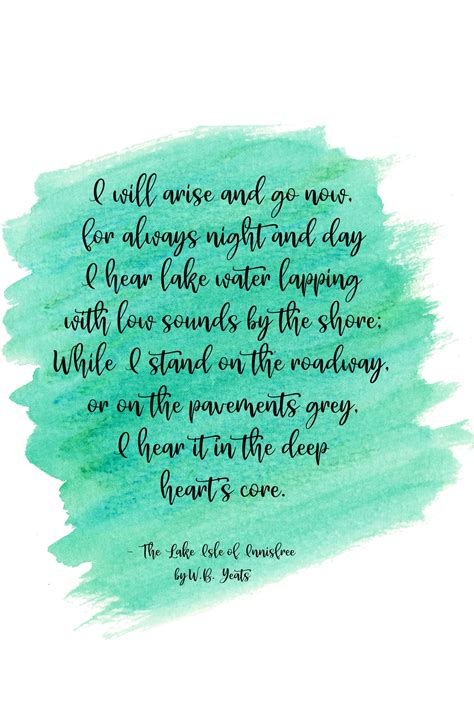 I will arise and go now,
for always night and day
I hear lake water lapping
with low sounds by the shore;
While I stand on the roadway,
or on the pavements grey,
I hear it in the deep
heart's core.
- The Lake Isle of Innisfree
by W.B. Yeats